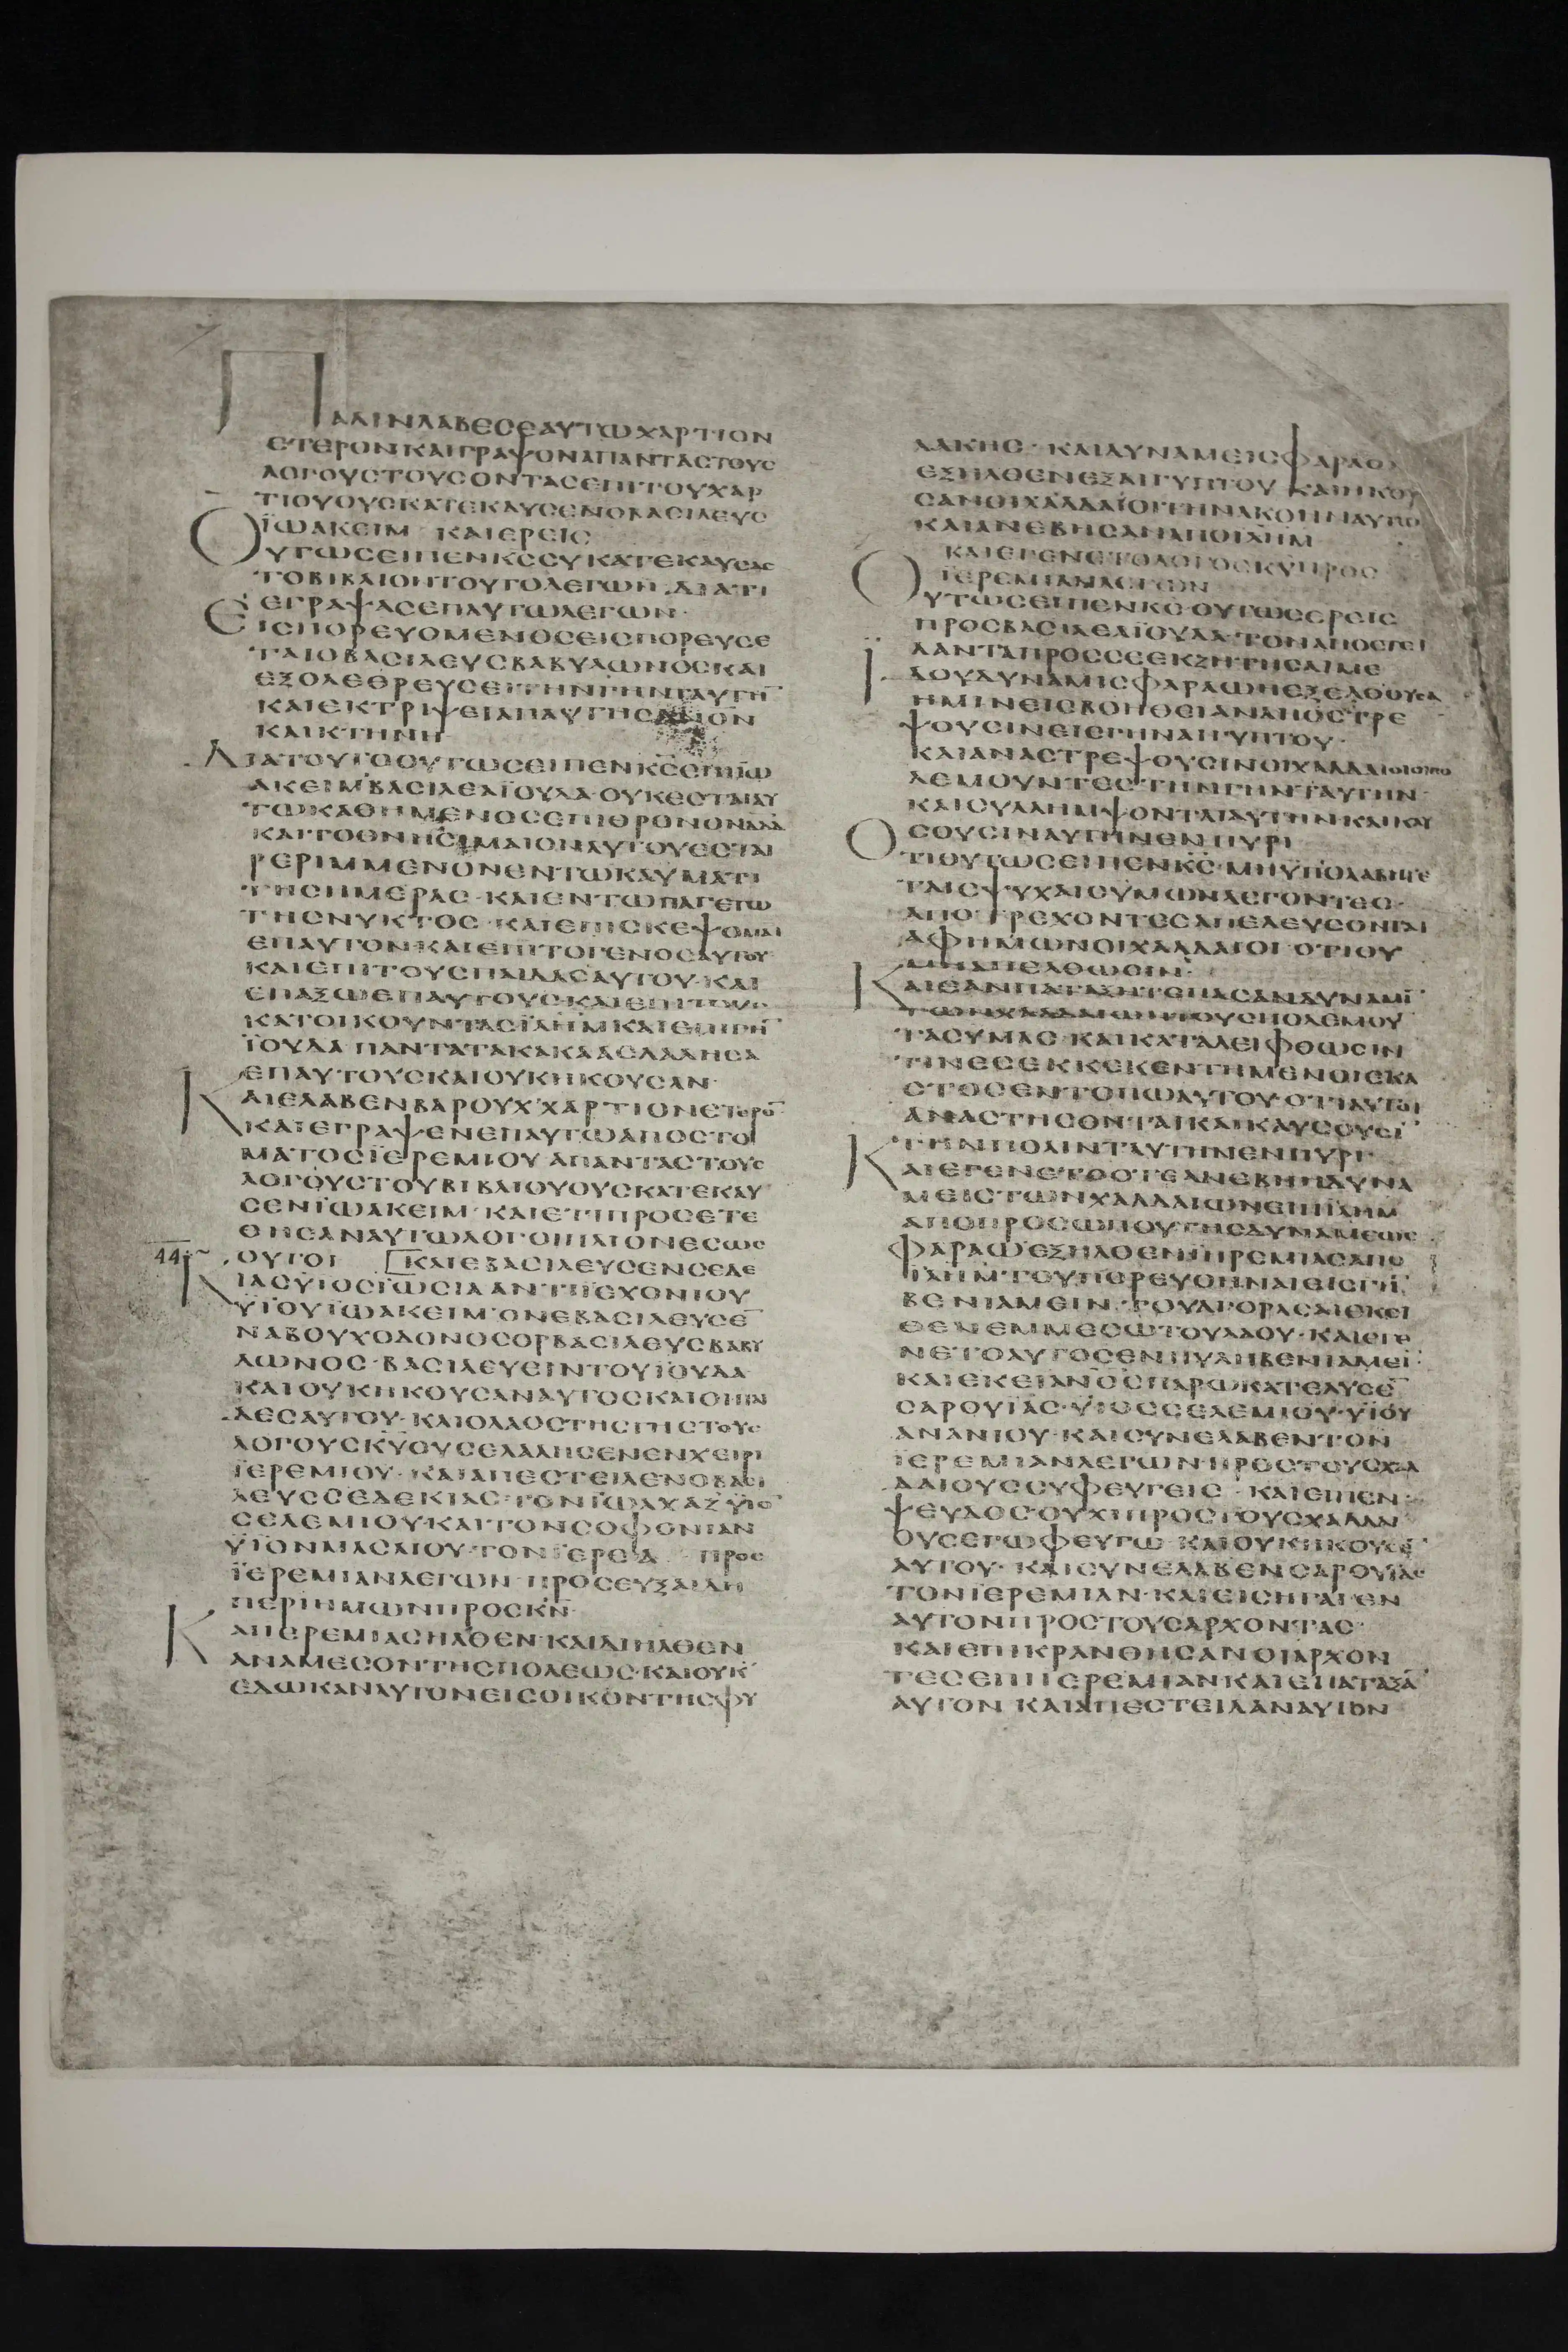 ΠΑΛΙΝΛΑΒΕCΕΑΥΤΩΧΑΡΤΙΟΝ
ΕΤΕΡΟΝΚΑΙΓΡΑΨΟΝΑΠΑΝΤΑCΤΟΥC
ΛΟΓΟΥCΤΟΥCΟΝΤΑCΕΠΙΤΟΥΧΑΡ
ΤΙΟΥΟΥCΚΑΤΕΚΑΥCΕΝΟΒΑCΙΛΕΥC
ΪΩΑΚΕΙΜ ΚΑΙΕΡΕΙC
ΟΥΤΩCΕΙΠΕΝΚC CΥΚΑΤΕΚΑΥCΑC
ΤΟΒΙΒΛΙΟΝΤΟΥΤΟΛΕΓΩΝ ΔΙΑΤΙ
ΕΓΡΑΨΑCΕΠΑΥΤΩΛΕΓΩΝ·
ΕΙCΠΟΡΕΥΟΜΕΝΟCΕΙCΠΟΡΕΥCΕ
ΤΑΙΟΒΑCΙΛΕΥCΒΑΒΥΛΩΝΟCΚΑΙ
ΕΞΟΛΕΘΡΕΥCΕΙΤΗΝΓΗΝΤΑΥΤΗ̅
ΚΑΙΕΚΤΡΙΨΕΙΑΠΑΥΤΗCΑΝΟΝ
ΚΑΙΚΤΗΝΗ
ΔΙΑΤΟΥΤΟΟΥΤΩCΕΙΠΕΝΚCΕΠΙΪΩ
ΑΚΕΙΜΒΑCΙΛΕΑΪΟΥΔΑ·ΟΥΚΕCΤΑΙΑΥ
ΤΩΚΑΘΗΜΕΝΟCΕΠΙΘΡΟΝΟΝΔΑΔ
ΚΑΙΤΟΘΝΗCΙΜΑΙΟΝΑΥΤΟΥΕCΤΑΙ
ΡΕΡΙΜΜΕΝΟΝΕΝΤΩΚΑΥΜΑΤΙ
ΤΗCΗΜΕΡΑC·ΚΑΙΕΝΤΩΠΑΓΕΤΩ
ΤΗCΝΥΚΤΟC·ΚΑΙΕΠΙCΚΕΨΟΜΑΙ
ΕΠΑΥΤΟΝ·ΚΑΙΕΠΙΤΟΓΕΝΟCΑΥΤΟΥ
ΚΑΙΕΠΙΤΟΥCΠΑΙΔΑCΑΥΤΟΥ·ΚΑΙ
ΕΠΑΞΩΕΠΑΥΤΟΥC·ΚΑΙΕΠΙΤΟΥC
ΚΑΤΟΙΚΟΥΝΤΑCΪΛΗΜΚΑΙΕΠΙΓΗ̅
ΪΟΥΔΑ ΠΑΝΤΑΤΑΚΑΚΑΑΕΛΑΛΗCΑ
ΕΠΑΥΤΟΥCΚΑΙΟΥΚΗΚΟΥCΑΝ·
ΚΑΙΕΛΑΒΕΝΒΑΡΟΥΧΧΑΡΤΙΟΝΕΤΕΡΟ̅
ΚΑΙΕΓΡΑΨΕΝΕΠΑΥΤΩΑΠΟCΤΟ
ΜΑΤΟCΪΕΡΕΜΙΟΥΑΠΑΝΤΑCΤΟΥC
ΛΟΓΟΥCΤΟΥΒΙΒΛΙΟΥΟΥCΚΑΤΕΚΑΥ
CΕΝΪΩΑΚΕΙΜ·ΚΑΙΕΤΙΠΡΟCΕΤΕ
ΘΗCΑΝΑΥΤΩΛΟΓΟΙΠΛΙΟΝΕCΩC
44 ΟΥΤΟΙ ΚΑΙΕΒΑCΙΛΕΥCΕΝCΕΔΕ
ΚΙΑCΥΙΟCΪΩCΙΑΑΝΤΙΪΕΧΟΝΙΟΥ
ΥΪΟΥΪΩΑΚΕΙΜ·ΟΝΕΒΑCΙΛΕΥCΕ̅
ΝΑΒΟΥΧΟΔΟΝΟCΟΡΒΑCΙΛΕΥCΒΑΒΥ
ΛΩΝΟC·ΒΑCΙΛΕΥΕΙΝΤΟΥΪΟΥΔΑ
ΚΑΙΟΥΚΗΚΟΥCΑΝΑΥΤΟCΚΑΙΟΙΠΑΙ
ΔΕCΑΥΤΟΥ·ΚΑΙΟΛΑΟCΤΗCΓΗCΤΟΥC
ΛΟΓΟΥCΚΥΟΥCΕΛΑΛΗCΕΝΕΝΧΕΙΡΙ
ΪΕΡΕΜΙΟΥ·ΚΑΙΑΠΕCΤΕΙΛΕΝΟΒΑCΙ
ΛΕΥCCΕΔΕΚΙΑC·ΤΟΝΪΩΑΧΑΖΥΙΟ̅
CΕΛΕΜΙΟΥ·ΚΑΙΤΟΝCΟΦΟΝΙΑΝ
ΥΪΟΝΜΑCΑΙΟΥ·ΤΟΝΪΕΡΕΑ ΠΡΟC
ΪΕΡΕΜΙΑΝΛΕΓΩΝ·ΠΡΟCΕΥΞΑΙΔΗ
ΠΕΡΙΗΜΩΝΠΡΟCΚΝ̅
ΚΑΙΪΕΡΕΜΙΑCΗΛΘΕΝ·ΚΑΙΔΙΗΛΘΕΝ
ΑΝΑΜΕCΟΝΤΗCΠΟΛΕΩC·ΚΑΙΟΥΚ
ΕΔΩΚΑΝΑΥΤΟΝΕΙCΟΙΚΟΝΤΗCΦΥ
ΛΑΚΗC·ΚΑΙΔΥΝΑΜΕΙCΦΑΡΑΩ
ΕΞΗΛΘΕΝΕΞΑΙΓΥΠΤΟΥ ΚΑΙΗΚΟΥ
CΑΝΟΙΧΑΛΔΑΙΟΙΤΗΝΑΚΟΗΝΑΥΤΩ
ΚΑΙΑΝΕΒΗCΑΝΑΠΟΪΛΗΜ
ΚΑΙΕΓΕΝΕΤΟΛΟΓΟCΚΥΠΡΟC
ΪΕΡΕΜΙΑΝΛΕΓΩΝ
ΟΥΤΩCΕΙΠΕΝΚC·ΟΥΤΩCΕΡΕΙC
ΠΡΟCΒΑCΙΛΕΑΪΟΥΔΑ·ΤΟΝΑΠΟCΤΕΙ
ΛΑΝΤΑΠΡΟCCΕΕΚΖΗΤΗCΑΙΜΕ
ΪΔΟΥΔΥΝΑΜΙCΦΑΡΑΩΗΕΞΕΛΘΟΥCΑ
ΗΜΙΝΕΙCΒΟΗΘΕΙΑΝΑΠΟCΤΡΕ
ΨΟΥCΙΝΕΙCΓΗΝΑΙΓΥΠΤΟΥ·
ΚΑΙΑΝΑCΤΡΕΨΟΥCΙΝΟΙΧΑΛΔΑΙΟΙΟΙΠΟ
ΛΕΜΟΥΝΤΕCΤΗΝΓΗΝΤΑΥΤΗΝ·
ΚΑΙCΥΛΛΗΜΨΟΝΤΑΙΑΥΤΗΝΚΑΙΚΑΥ
CΟΥCΙΝΑΥΤΗΝΕΝΠΥΡΙ
ΟΤΙΟΥΤΩCΕΙΠΕΝΚC·ΜΗΥΠΟΛΑΒΗΤΕ
ΤΑΙCΨΥΧΑΙCΥΜΩΝΛΕΓΟΝΤΕC·
ΑΠΟΤΡΕΧΟΝΤΕCΑΠΕΛΕΥCΟΝΤΑΙ
ΑΦΗΜΩΝΟΙΧΑΛΔΑΙΟΙ·ΟΤΙΟΥ
ΜΗΑΠΕΛΘΩCΙΝ·
ΚΑΙΕΑΝΠΑΤΑΞΗΤΕΠΑCΑΝΔΥΝΑΜΙ̅
ΤΩΝΧΑΛΔΑΙΩΝΤΟΥCΠΟΛΕΜΟΥ̅
ΤΑCΥΜΑC·ΚΑΙΚΑΤΑΛΕΙΦΘΩCΙΝ
ΤΙΝΕCΕΚΚΕΚΕΝΤΗΜΕΝΟΙΕΚΑ
CΤΟCΕΝΤΟΠΩΑΥΤΟΥ·ΟΤΙΑΥΤΟΙ
ΑΝΑCΤΗCΟΝΤΑΙΚΑΙΚΑΥCΟΥCΙ̅
ΤΗΝΠΟΛΙΝΤΑΥΤΗΝΕΝΠΥΡΙ·
ΚΑΙΕΓΕΝΕΤΟΟΤΕΑΝΕΒΗΗΔΥΝΑ
ΜΕΙCΤΩΝΧΑΛΔΑΙΩΝΕΠΙΪΛΗΜ
ΑΠΟΠΡΟCΩΠΟΥΤΗCΔΥΝΑΜΕΩC
ΦΑΡΑΩΕΞΗΛΘΕΝΪΕΡΕΜΙΑCΑΠΟ
ΪΛΗΜ·ΤΟΥΠΟΡΕΥΘΗΝΑΙΕΙCΓΗ̅
ΒΕΝΙΑΜΕΙΝ·ΤΟΥΑΓΟΡΑCΑΙΕΚΕΙ
ΘΕΝΕΜΜΕCΩΤΟΥΛΑΟΥ·ΚΑΙΕΓΕ
ΝΕΤΟΑΥΤΟCΕΝΠΥΛΗΒΕΝΙΑΜΕΙ̅
ΚΑΙΕΚΕΙΑΝΟCΠΑΡΩΚΑΤΕΛΥCΕ̅
CΑΡΟΥΪΑC·ΥΙΟCCΕΛΕΜΙΟΥ·ΥΪΟΥ
ΑΝΑΝΙΟΥ·ΚΑΙCΥΝΕΛΑΒΕΝΤΟΝ
ΪΕΡΕΜΙΑΝΛΕΓΩΝ·ΠΡΟCΤΟΥCΧΑΛ
ΔΑΙΟΥCCΥΦΕΥΓΕΙC ΚΑΙΕΙΠΕΝ·
ΨΕΥΔΟC·ΟΥΧΙΠΡΟCΤΟΥCΧΑΛΔΑΙ
ΟΥCΕΓΩΦΕΥΓΩ ΚΑΙΟΥΚΗΚΟΥCΕ̅
ΑΥΤΟΥ·ΚΑΙCΥΝΕΛΑΒΕΝCΑΡΟΥΪΑC
ΤΟΝΪΕΡΕΜΙΑΝ·ΚΑΙΕΙCΗΓΑΓΕΝ
ΑΥΤΟΝΠΡΟCΤΟΥCΑΡΧΟΝΤΑC·
ΚΑΙΕΠΙΚΡΑΝΘΗCΑΝΟΙΑΡΧΟΝ
ΤΕCΕΠΙΪΕΡΕΜΙΑΝΚΑΙΕΠΑΤΑΞΑ̅
ΑΥΤΟΝ ΚΑΙΑΠΕCΤΕΙΛΑΝΑΥΤΟΝ